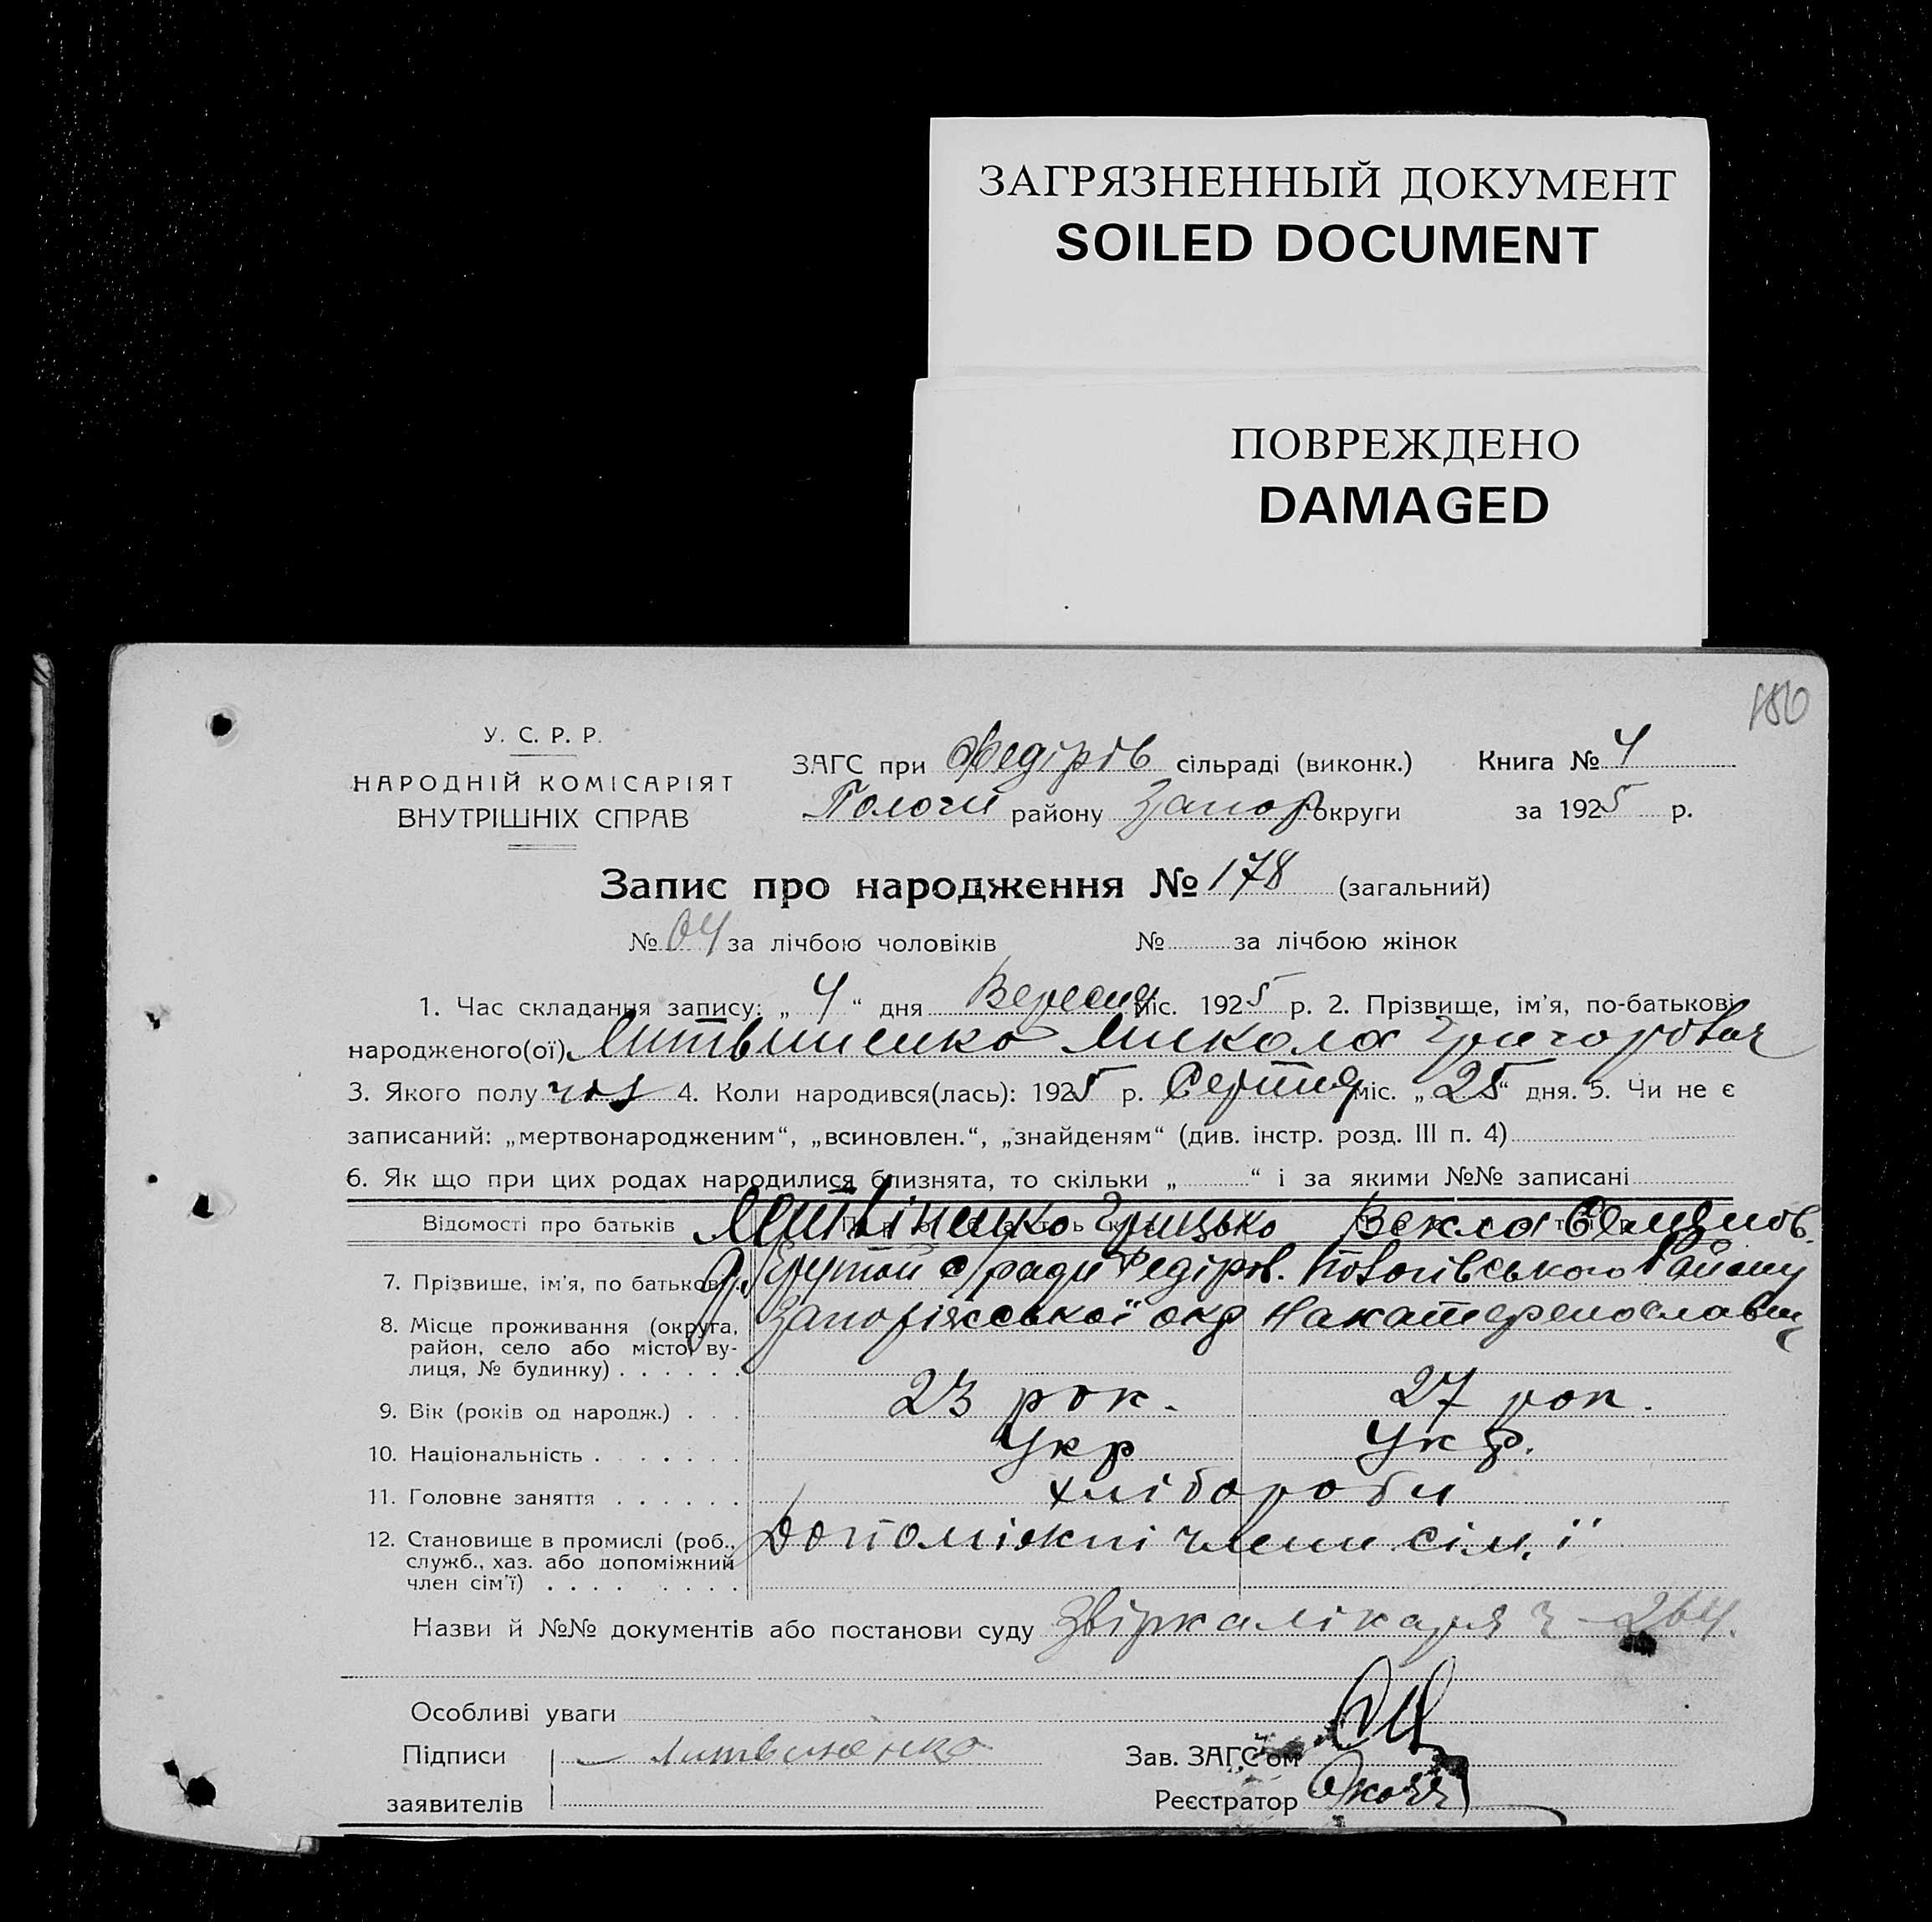 ЗАГРЯЗНЕННЫЙ ДОКУМЕНТ
SOILED DOCUMENT
ПОВРЕЖДЕНО
DAMAGED
У. С. Р. Р.
НАРОДНІЙ КОМІСАРІЯТ
ВНУТРІШНІХ СПРАВ
ЗАГС при Федірів сільраді (виконк.)
Пологи району Запор округи
Книга № 4
за 1925 р.
Запис про народження № 178 (загальний)
№ 04 за лічбою чоловіків № за лічбою жінок
1. Час складання запису: „ 4 “ дня Вересня міс. 1925 р. 2. Прізвище, ім'я, по-батькові
народженого(ої) Литвиненко Микола Григорович
3. Якого полу чол 4. Коли народився(лась): 1925 р. Серпня міс. „ 25 “ дня. 5. Чи не є
записаний: „мертвонародженим“, „всиновлен.“, „знайденям“ (див. інстр. розд. III п. 4)
6. Як що при цих родах народилися близнята, то скільки „ “ і за якими №№ записані
Відомості про батьків Литвіненко Грицько Векла Семенов.
7. Прізвище, ім'я, по батькові с/ради Федіров. Пологівського Району
8. Місце проживання (округа, Запоріжської окр на катеренославщ
район, село або місто, ву-
лиця, № будинку)
9. Вік (років од народж.) 23 рок. 27 рок.
10. Національність Укр Укр.
11. Головне заняття хлібороби
12. Становище в промислі (роб., Допоміжні члени сім,ї
служб., хаз. або допоміжний
член сім'ї)
Назви й №№ документів або постанови суду лікаря 264.
Особливі уваги
Підписи Литвиненко
заявителів
Зав. ЗАГС'ом
Реєстратор